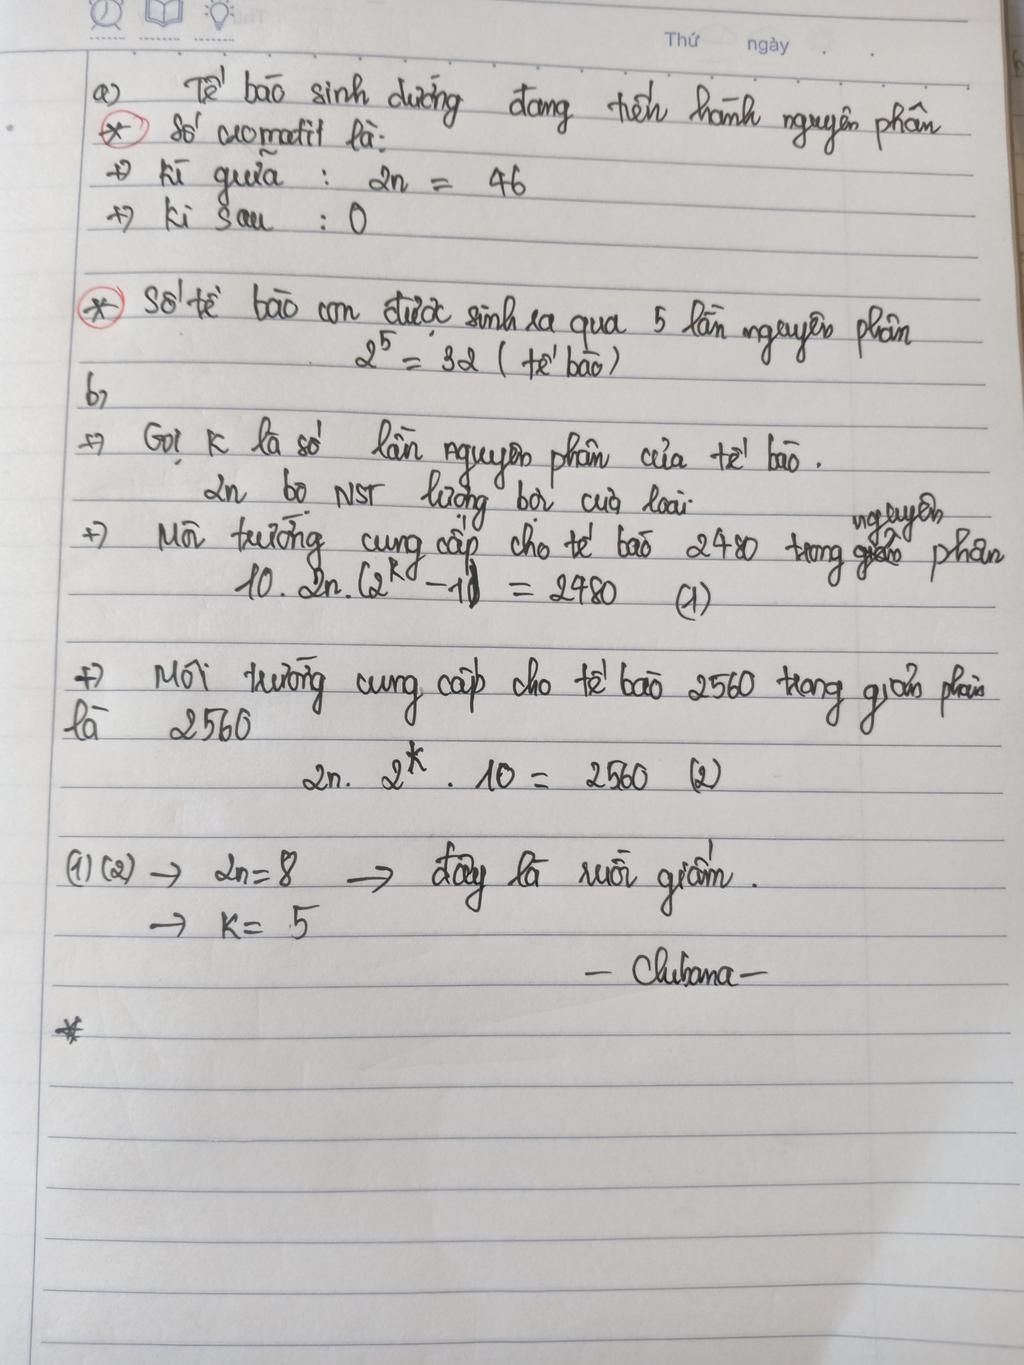 Thứ ngày
a) Tế bào sinh dưỡng đang tiến hành nguyên phân
* Số cromatit là:
+) Kì giữa : 2n = 46
+) Kì sau : 0
* Số tế bào con được sinh ra qua 5 lần nguyên phân
2^5 = 32 (tế bào)
b,
+) Gọi K là số lần nguyên phân của tế bào.
2n bộ NST lưỡng bội của loài.
+) Môi trường cung cấp cho tế bào 2480 trong nguyên phân
10. 2n. (2^k - 1) = 2480 (1)
+) Môi trường cung cấp cho tế bào 2560 trong giảm phân
là 2560
2n. 2^k . 10 = 2560 (2)
(1) (2) → 2n = 8 → đây là ruồi giấm.
→ K = 5
*